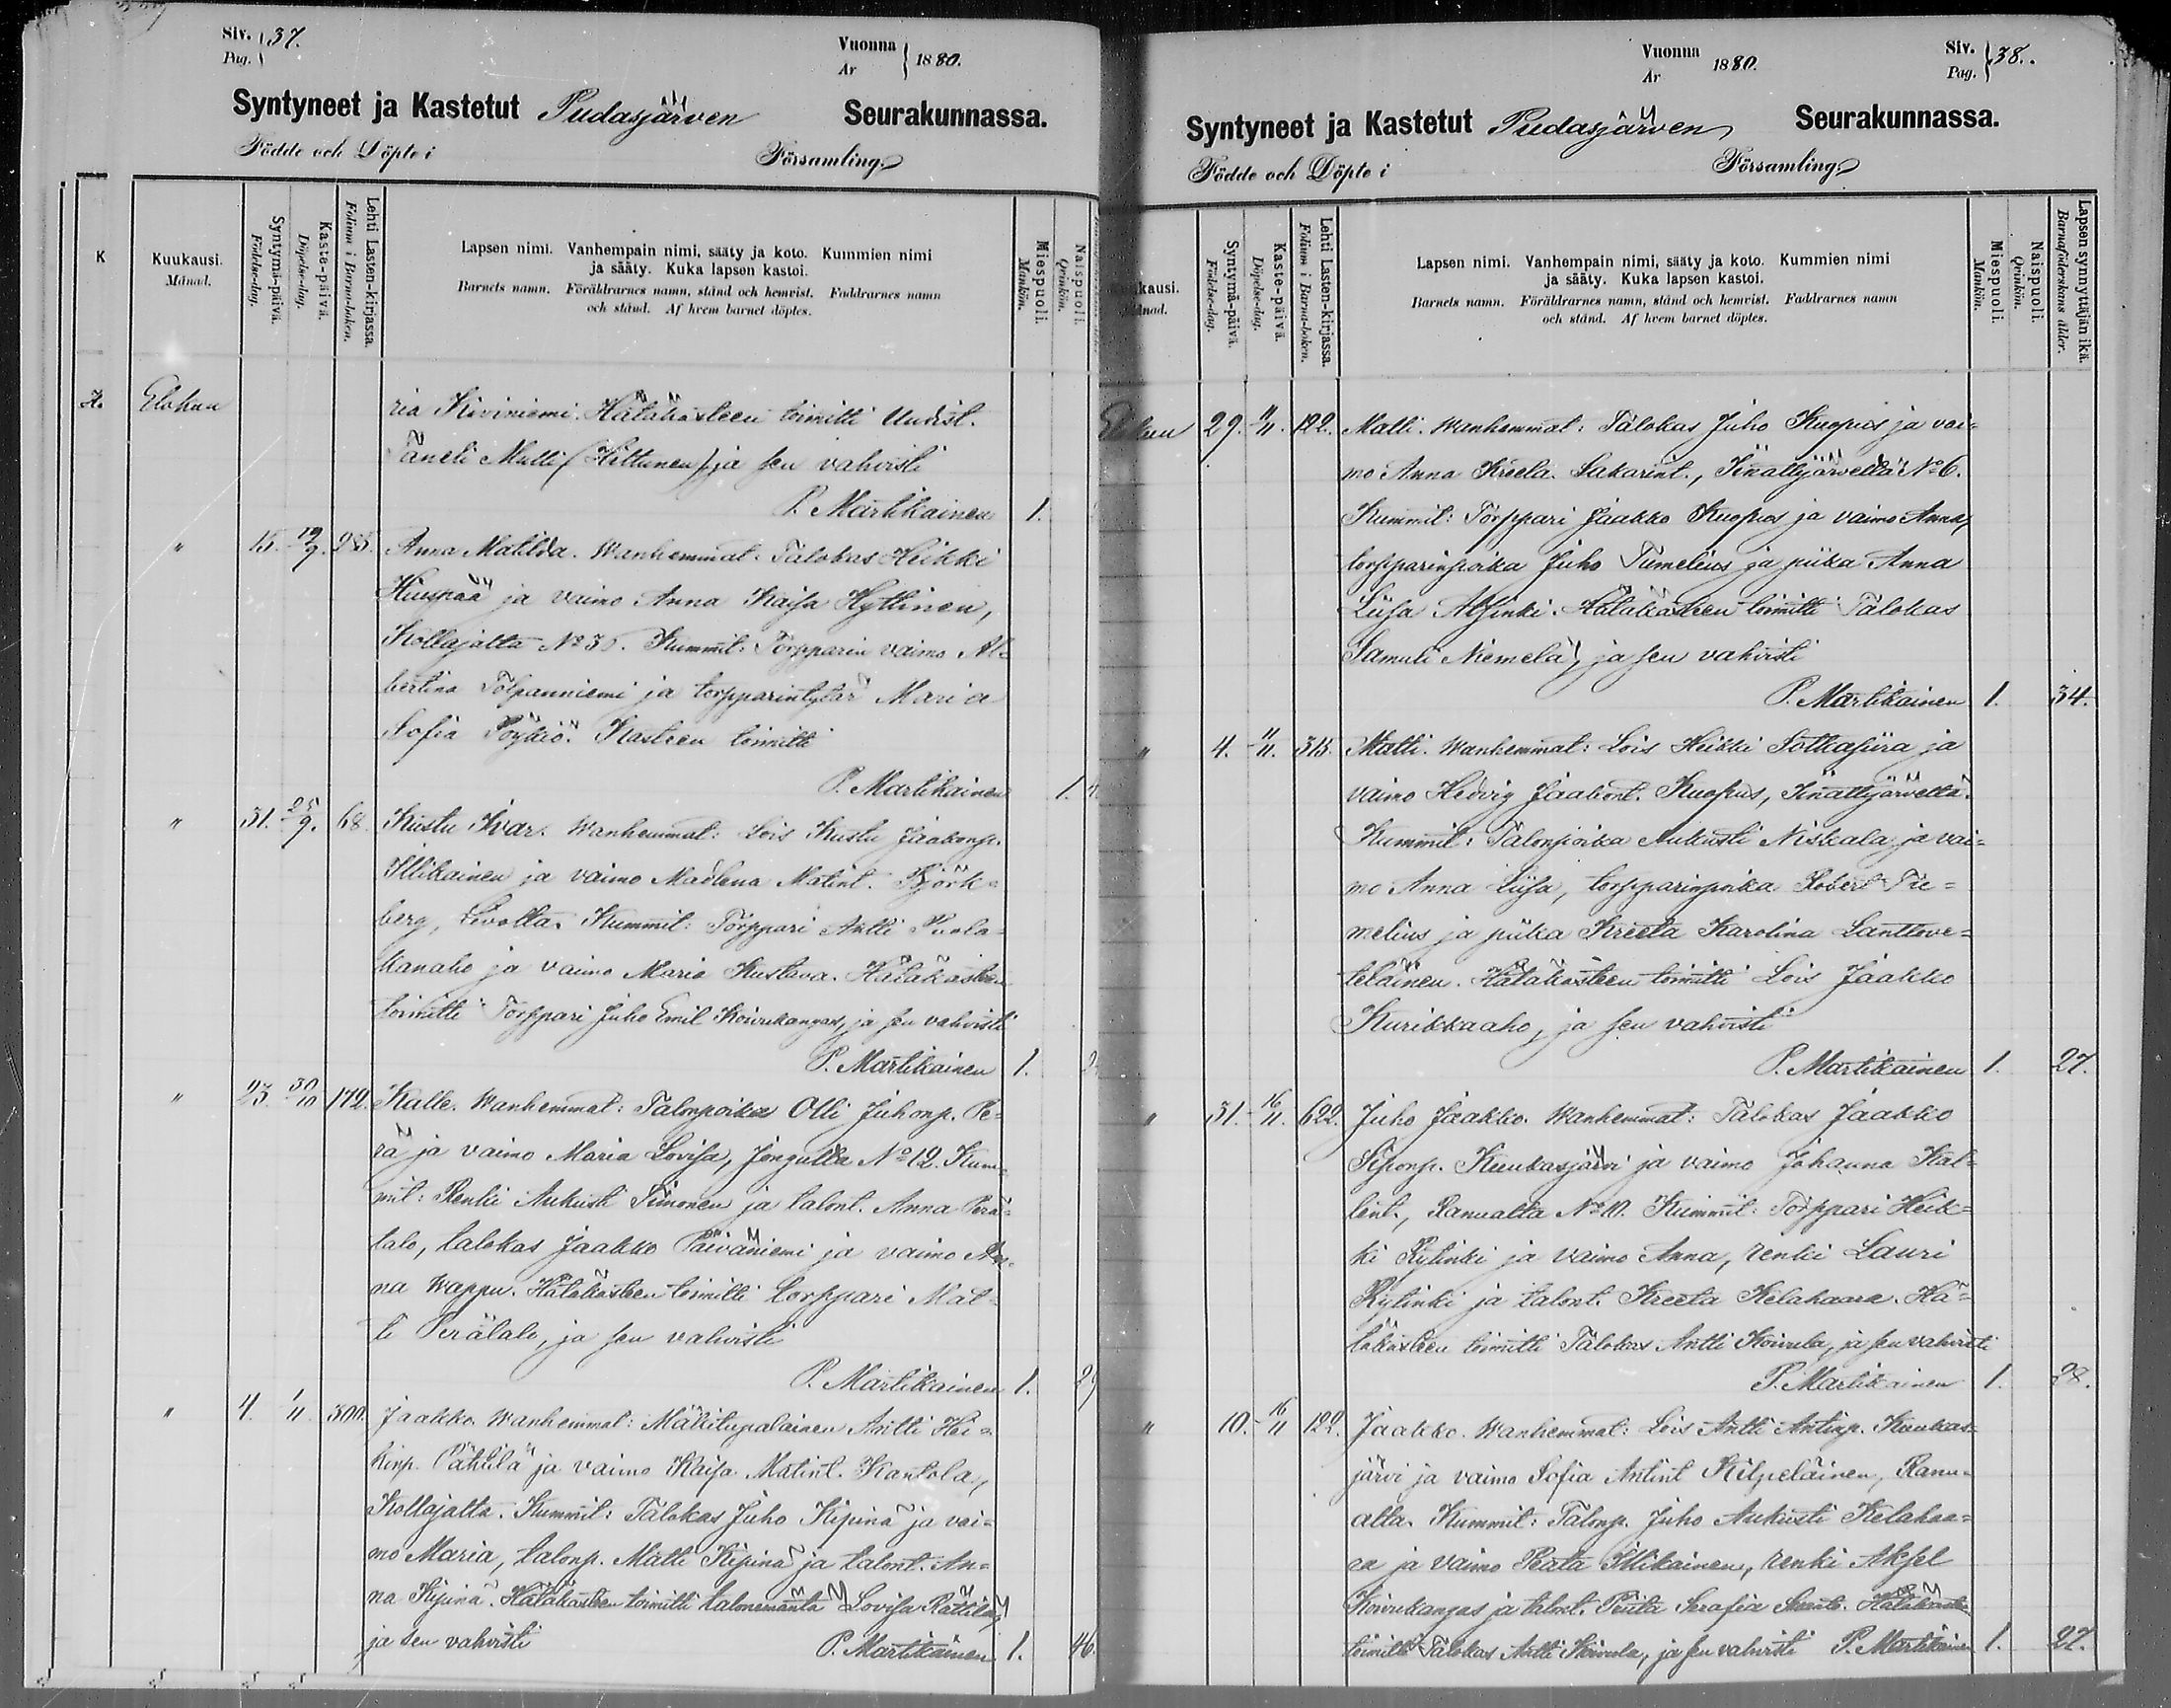 Siv. 37.
Pag.
Vuonna
År
1880.
Syntyneet ja Kastetut Pudasjärven Seurakunnassa.
Födde och Döpte i Församling
K
Kuukausi.
Månad.
Syntymä-päivä.
Födelse-dag.
Kaste-päivä.
Döpelse-dag.
Lehti Lasten-kirjassa.
Folium i Barna-boken.
Lapsen nimi. Vanhempain nimi, sääty ja koto. Kummien nimi
ja sääty. Kuka lapsen kastoi.
Barnets namn. Föräldrarnes namn, stånd och hemvist. Faddrarnes namn
och stånd. Af hvem barnet döptes.
Miespuoli.
Mankön.
Naispuoli.
Qvinkön.
Elokuu ria Kiviniemi. Hätäkasteen toimitti Uudist.
Taneli Matti (Hiltunen) ja sen vahvisti
P. Martikainen 1.
" 15. 19/9. 285. Anna Matilda. Wanhemmat: Talokas Heikki
Hiuspää ja vaimo Anna Kaisa Hyttinen,
Kollajalta No 30. Kummit: Torpparin vaimo Al-
bertina Tolpanniemi ja torpparintytär Maria
Sofia Pöykiö. Kasteen toimitti
P. Martikainen 1.
" 31. 25/9. 68. Kustu Ivar. Wanhemmat: Lois Kustu Jaakonp.
Illikainen ja vaimo Madlena Matint. Björk-
berg, Livolta. Kummit: Torppari Antti Puola-
kanaho ja vaimo Maria Kustava. Hätäkasteen
toimitti Torppari Juho Emil Koivukangas, ja sen vahvisti
P. Martikainen 1.
" 23. 30/10 172. Kalle. Wanhemmat: Talonpoika Olli Juhonp. Pe-
rä ja vaimo Maria Lovisa, Jongulta No 12. Kum-
mit: Renki Aukusti Timonen ja talont. Anna Perä-
talo, talokas Jaakko Päiväniemi ja vaimo An-
na Wappu. Hätäkasteen toimitti torppari Mat-
ti Perätalo, ja sen vahvisti
P. Martikainen 1.
" 4. 1/11. 300. Jaakko. Wanhemmat: Mäkitupalainen Antti Hei-
kinp. Pähtilä ja vaimo Kaisa Matint. Kantola,
Kollajalta. Kummit: Talokas Juho Kipinä ja vai-
mo Maria, talonp. Matti Kipinä ja talont. An-
na Kipinä. Hätäkasteen toimitti talonemäntä Lovisa Rättilä,
ja sen vahvisti P. Martikainen 1. 46.
Vuonna
År
1880.
Siv. 38.
Pag.
Syntyneet ja Kastetut Pudasjärven Seurakunnassa.
Födde och Döpte i Församling
kausi.
Månad.
Syntymä-päivä.
Födelse-dag.
Kaste-päivä.
Döpelse-dag.
Lehti Lasten-kirjassa.
Folium i Barna-boken.
Lapsen nimi. Vanhempain nimi, sääty ja koto. Kummien nimi
ja sääty. Kuka lapsen kastoi.
Barnets namn. Föräldrarnes namn, stånd och hemvist. Faddrarnes namn
och stånd. Af hvem barnet döptes.
Miespuoli.
Mankön.
Naispuoli.
Qvinkön.
Lapsen synnyttäjän ikä.
Barnaföderskans ålder.
29. 11/11. 122. Matti. Wanhemmat: Talokas Juho Kuopus ja vai-
mo Anna Kreeta Sakarint., Iinattijärveltä No 6.
Kummit: Torppari Jaakko Kuopus ja vaimo Anna,
torpparinpoika Juho Tumelius ja piika Anna
Liisa Alsinki. Hätäkasteen toimitti Talokas
Samuli Niemelä, ja sen vahvisti
P. Martikainen 1. 34.
" 4. 11/11. 315. Matti. Wanhemmat: Lois Heikki Sotkasiira ja
vaimo Hedvig Jaakont. Kuopus, Iinattijärveltä.
Kummit: Talonpoika Aukusti Niskala ja vai-
mo Anna Liisa, torpparinpoika Robert Tu-
melius ja piika Kreeta Karolina Lanttove-
teläinen. Hätäkasteen toimitti Lois Jaakko
Kurikkaaho, ja sen vahvisti
P. Martikainen 1. 27.
" 31. 16/11. 622. Juho Jaakko. Wanhemmat: Talokas Jaakko
Siponp. Kuukasjärvi ja vaimo Johanna Kal-
lent., Ranualta No 10. Kummit: Torppari Heik-
ki Rytinki ja vaimo Anna, renki Lauri
Rytinki ja talont. Kreeta Kelahaara. Hä-
täkasteen toimitti Talokas Antti Koivula, ja sen vahvisti
P. Martikainen 1. 28.
" 10. 16/11 122. Jaakko. Wanhemmat: Lois Antti Antinp. Kuukas-
järvi ja vaimo Sofia Antint Kilpeläinen, Ranu-
alta. Kummit: Talonp. Juho Aukusti Kelahaa-
ra ja vaimo Peata Illikainen, renki Aksel
Koivukangas ja talont. Priita Serafia Hätäkasteen
toimitti Talokas Antti Koivula, ja sen vahvisti P. Martikainen 1. 27.